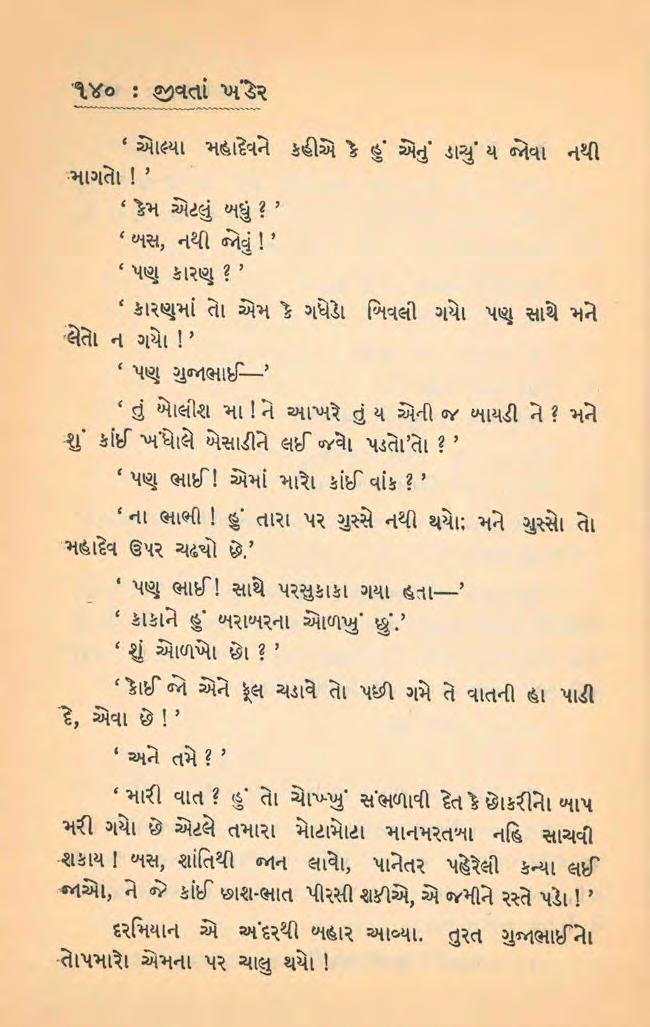 ૧૪૦ : જીવતાં ખંડેર
‘ ઓલ્યા મહાદેવને કહીએ કે હું એનું ડાચું ય જોવા નથી
માગતો ! ’
‘ કેમ એટલું બધું ? ’
‘ બસ, નથી જોવું ! ’
‘ પણ કારણ ? ’
‘ કારણમાં તો એમ કે ગધેડો બિવલી ગયો પણ સાથે મને
લેતો ન ગયો ! ’
‘ પણ ગુજાભાઈ—’
‘ તું બોલીશ મા ! ને આખરે તું ય એની જ બાયડી ને ? મને
શું કાંઈ ખંધોલે બેસાડીને લઈ જવો પડતો’તો ? ’
‘ પણ ભાઈ ! એમાં મારો કાંઈ વાંક ? ’
‘ ના ભાભી ! હું તારા પર ગુસ્સે નથી થયો; મને ગુસ્સો તો
મહાદેવ ઉપર ચઢ્યો છે.’
‘ પણ ભાઈ ! સાથે પરસુકાકા ગયા હતા—’
‘ કાકાને હું બરાબરના ઓળખું છું.’
‘ શું ઓળખો છો ? ’
‘ કોઈ જો એને ફૂલ ચડાવે તો પછી ગમે તે વાતની હા પાડી
દે, એવા છે ! ’
‘ અને તમે ? ’
‘ મારી વાત ? હું તો ચોખ્ખું સંભળાવી દેત કે છોકરીનો બાપ
મરી ગયો છે એટલે તમારા મોટામોટા માનમરતબા નહિ સાચવી
શકાય ! બસ, શાંતિથી જાન લાવો, પાનેતર પહેરેલી કન્યા લઈ
જાઓ, ને જે કાંઈ છાશ-ભાત પીરસી શકીએ, એ જમીને રસ્તે પડો ! ’
દરમિયાન એ અંદરથી બહાર આવ્યા. તુરત ગુજાભાઈનો
તોપમારો એમના પર ચાલુ થયો !